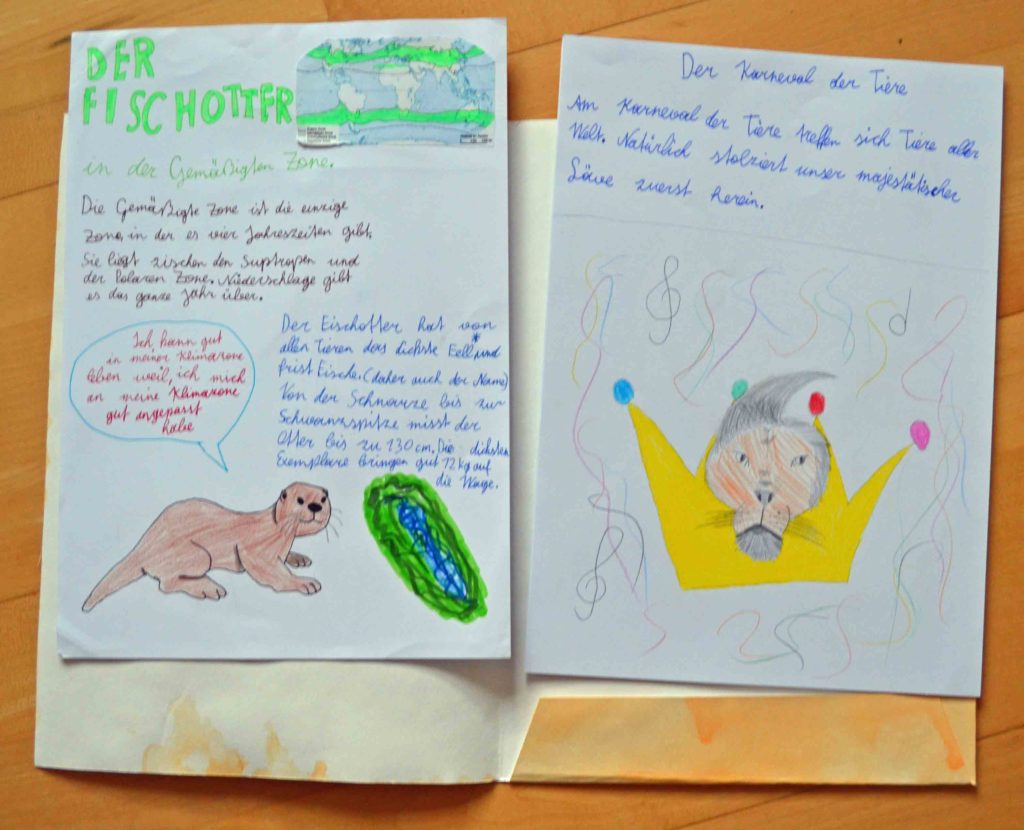 DER
FISCHOTTER
in der Gemäßigten Zone.
Die Gemäßigte Zone ist die einzige
Zone, in der es vier Jahreszeiten gibt.
Sie liegt zischen den Suptropen und
der Polaren Zone. Niederschlage gibt
es das ganze Jahr über.
Ich, kann gut
in meiner Klimazone
leben weil, ich mich
an meine Klimazone
gut angepasst
habe
Der Fischotter hat von
allen Tieren das dichste Fell, und
frist Fische. (daher auch der Name)
Von der Schnauze bis zur
Schwanzspitze misst der
Otter bis zu 130 cm. Die dicksten
Exemplare bringen gut 12 kg auf
die Wage.
Der Karneval der Tiere
Am Karneval der Tiere treffen sich Tiere aller
Welt. Natürlich stolziert unser majestätischer
Löwe zuerst herein.